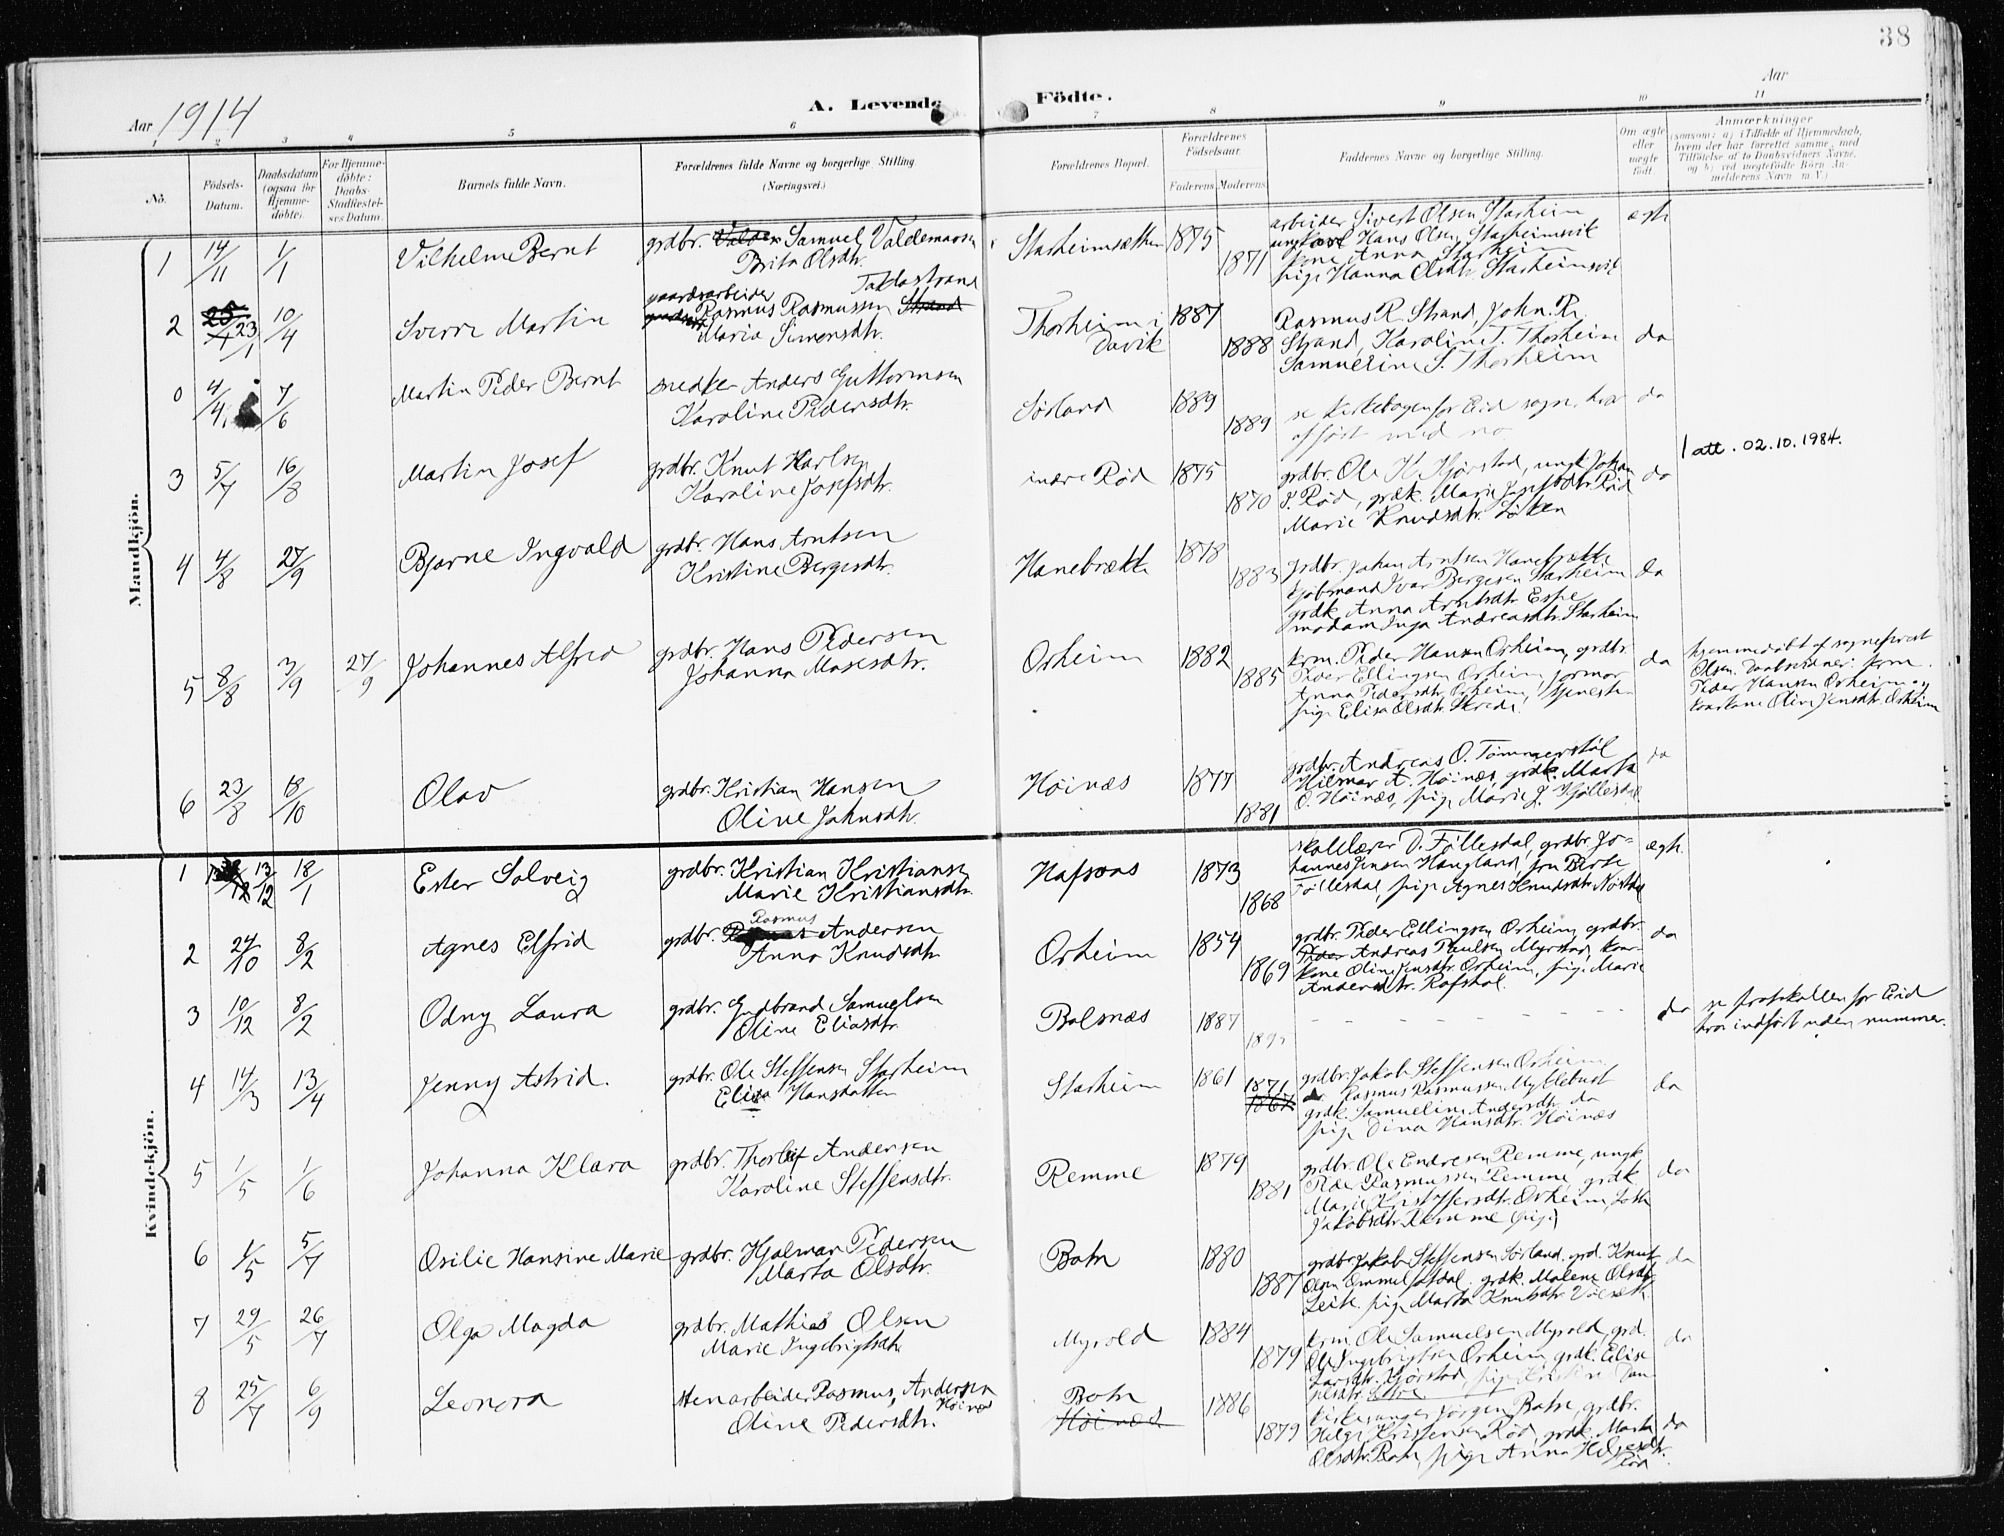 38
Aar 1914
A. Levende Födte.
Aar
1 2 3 4 5 6 7 8 9 10 11
No.
Födsels-Datum.
Daabsdatum (ogsaa for Hjemme-döbte).
For Hjemme-döbte: Daabs-Stadfæstel-ses Datum.
Barnets fulde Navn.
Forældrenes fulde Navne og borgerlige Stilling. (Næringsvei.)
Forældrenes Bopæl.
Forældrenes Födselsaar.
Faderens. Moderens.
Faddernes Navne og borgerlige Stilling.
Om ægte eller uægte födt.
Anmærkninger
(saasom: a) i Tilfælde af Hjemmedaab, hvem der har forrettet samme, med Tilföielse af to Daabsvidners Navne, og b) ved uægtefödte Börn An-melderens Navn m. V.)
Mandkjön.
1 14/11 1/1 Vilhelm Bernt grdbr. Samuel Valdemarsen
Brita Olsdtr.
Starheimsætten 1875 1871
arbeider Sivert Olsen Starheim
ungkarl Hans Olsen Starheimsvik
kone Anna Starheim
pige Hanna Olsdtr. Starheimsvik
ægte
2 23/1 10/4 Sverre Martin gaardsarbeider Taklostrand
Rasmus Rasmussen Strand
Maria Simonsdtr.
Thorheim i Davik 1887 1888
Rasmus R. Strand, John R.
Strand, Karoline T. Thorheim
Samueline S. Thorheim
do
0 4/4 7/6 Martin Peder Bernt snedker Anders Guttormsen
Karoline Pedersdtr.
Sørland 1889 1889
se kirkebogen for Eid sogn, hvor
opført med no
do
3 5/7 16/8 Martin Josef grdbr. Knut Karlsen
Karoline Josefsdtr.
indre Rød 1875 1870
grdbr. Ole K. Hjørstad, ungk. Johan
J. Rød, grdk. Marie Josefsdtr. Rød
Marie Knudsdtr. Løken
do
1 att. 02.10.1984.
4 4/8 27/9 Bjarne Ingvald grdbr. Hans Arntsen
Kristine Bergesdtr.
Hanebrækk 1878 1883
grdbr. Johan Arntsen Hanebrække
kjøbmand Ivar Bergesen Starheim
grdk. Anna Arntsdtr. Espe
madam Inga Andreasdtr. Starheim
do
5 8/8 3/9 27/9 Johannes Alfred grdbr. Hans Pedersen
Johanna Mosesdtr.
Orheim 1882 1885
krm. Peder Hansen Orheim, grdbr.
Peder Ellingsen Orheim, jormor
Anna Pedersdtr. Orheim, tjeneste-
pige Elisa Olsdtr. Skrede.
do
hjemmedøbt af sogneprest
Olsen. Daabsvidner: krm.
Peder Hansen Orheim og
kaarkone Oline Jensdtr. Orheim
6 23/8 18/10 Olav grdbr. Kristian Hansen
Oline Johnsdtr.
Høinæs 1877 1881
grdbr. Andreas O. Tømmerstøl
Hilmar A. Høinæs, grdk. Marta
O. Høinæs, pige Marie J. Hjøllesdal
do
Kvindekjön.
1 13/12 18/1 Ester Solveig grdbr. Kristian Kristiansen
Marie Kristiansdtr.
Hafsaas 1873 1868
skolelærer D. Föllesdal, grdbr. Jo-
hannes Jensen Haugland, fru Berte
Föllesdal, pige Agnes Knudsdtr. Nøstdal
ægte.
2 24/10 8/2 Agnes Elfrid grdbr. Rasmus Andersen
Anna Knudsdtr.
Orheim 1854 1869
grdbr. Peder Ellingsen Orheim, grdbr.
Peder Andreas Paulsen Myrstad, kaar-
kone Oline Jensdtr. Orheim, pige Marie
Andersdtr. Rafstal.
do
3 10/12 8/2 Odny Laura grdbr. Gudbrand Samuelsen
Oline Eliasdtr.
Balsnæs 1887 1895
- - - - - - - - -
do
se protokollen for Eid
hvor indført uden nummer.
4 14/3 13/4 Jenny Astrid. grdbr. Ole Steffensen Starheim
Elisa Hansdatter
Starheim 1861 1871 1867
grdbr. Jakob Steffensen Orheim
Rasmus Rasmussen Myklebust
grdk. Samueline Andersdtr. do
pige Dina Hansdtr. Høinæs
do
5 1/5 1/6 Johanna Klara grdbr. Thorleif Andersen
Karoline Steffensdtr.
Remme 1879 1881
grdbr. Ole Endresen Remme, ungk.
Peder Rasmussen Remme, grdk.
Marie Kristoffersdtr. Orheim,
Jakobsdtr. Remme (pige)
do
6 1/5 5/7 Osilie Hansine Marie grdbr. Hjalmar Pedersen
Marta Olsdtr.
Botn 1880 1887
grdbr. Jakob Steffensen Sørland, grd. Knut
Olsen Ommelfotdal. grdk. Malene Olsdtr.
Leite. pige Marta Knutsdtr.
do
7 29/5 26/7 Olga Magda grdbr. Mathias Olsen
Marie Ingebrigtsdtr.
Myrold 1884 1879
krm. Ole Samuelsen Myrold, grd.
Ole Ingebrigtsen Orheim, grdk. Elise
Larsdtr. Hjørstad, pige Dan-
ielsdtr.
do
8 25/7 6/9 Leonora stenarbeider Rasmus Andersen
Høinæs
Oline Pedersdtr.
Botn
Høinæs
1886 1879
kirkesanger Jørgen Botn, grdbr.
Helge Kristensen Rød, grdk. Marta
Olsdtr. Botn, pige Anna Helgesdtr.
Rød
do